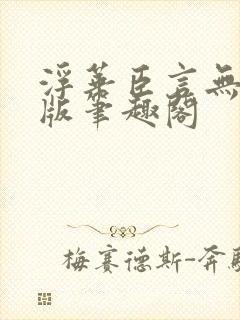 浮华臣言無
版筆趣閣
梅賽德斯-奔馳